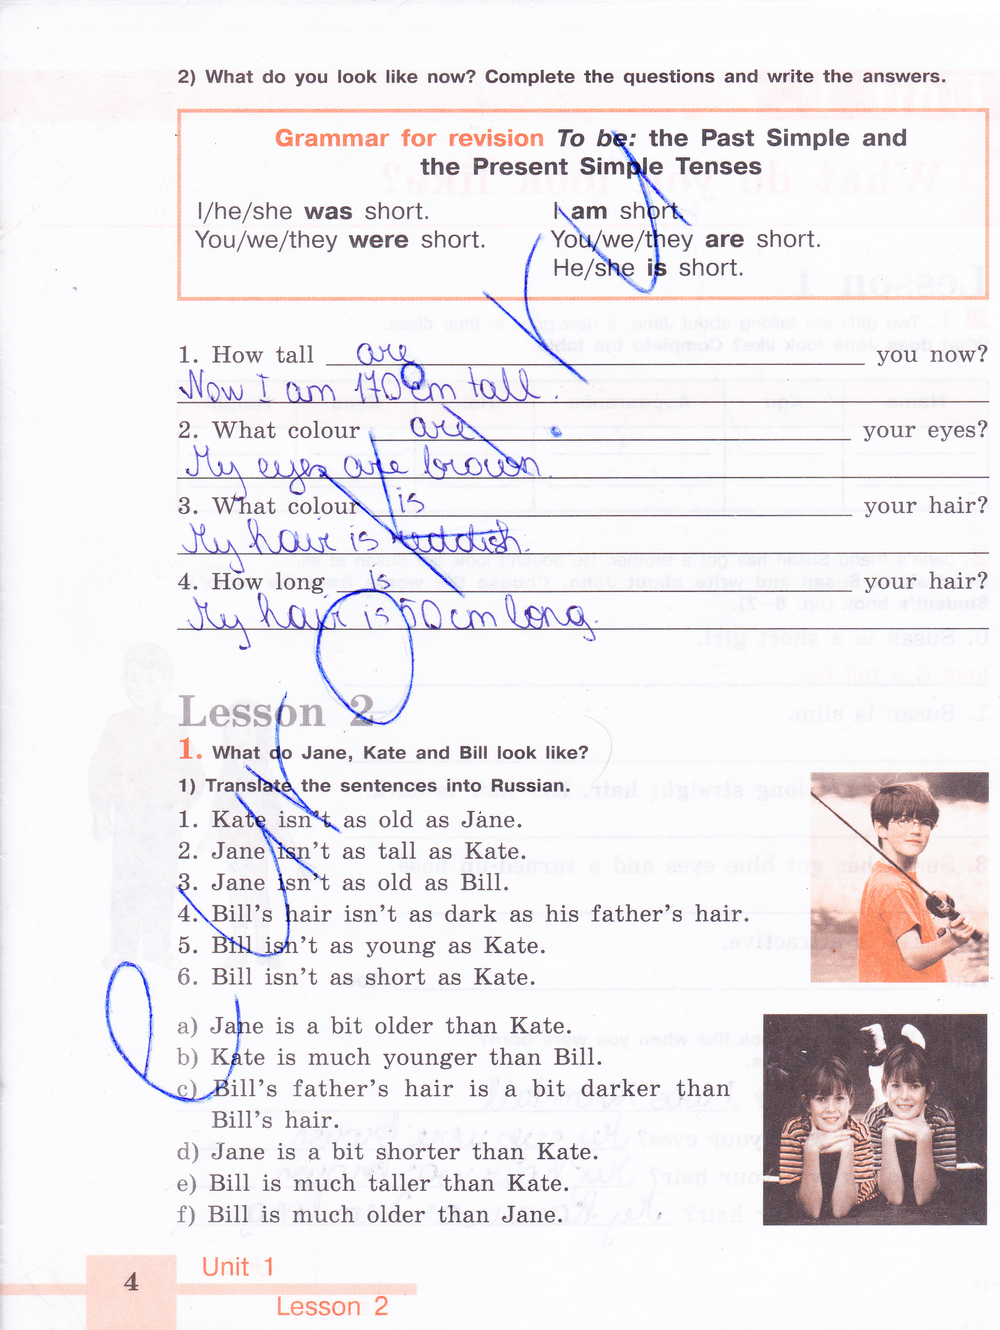 2) What do you look like now? Complete the questions and write the answers.
Grammar for revision To be: the Past Simple and
the Present Simple Tenses
I/he/she was short. I am short.
You/we/they were short. You/we/they are short.
He/she is short.
1. How tall are you now?
Now I am 170 cm tall.
2. What colour are your eyes?
My eyes are brown.
3. What colour is your hair?
My hair is reddish.
4. How long is your hair?
My hair is 50 cm long.
Lesson 2
1. What do Jane, Kate and Bill look like?
1) Translate the sentences into Russian.
1. Kate isn't as old as Jane.
2. Jane isn't as tall as Kate.
3. Jane isn't as old as Bill.
4. Bill's hair isn't as dark as his father's hair.
5. Bill isn't as young as Kate.
6. Bill isn't as short as Kate.
a) Jane is a bit older than Kate.
b) Kate is much younger than Bill.
c) Bill's father's hair is a bit darker than
Bill's hair.
d) Jane is a bit shorter than Kate.
e) Bill is much taller than Kate.
f) Bill is much older than Jane.
4
Unit 1
Lesson 2